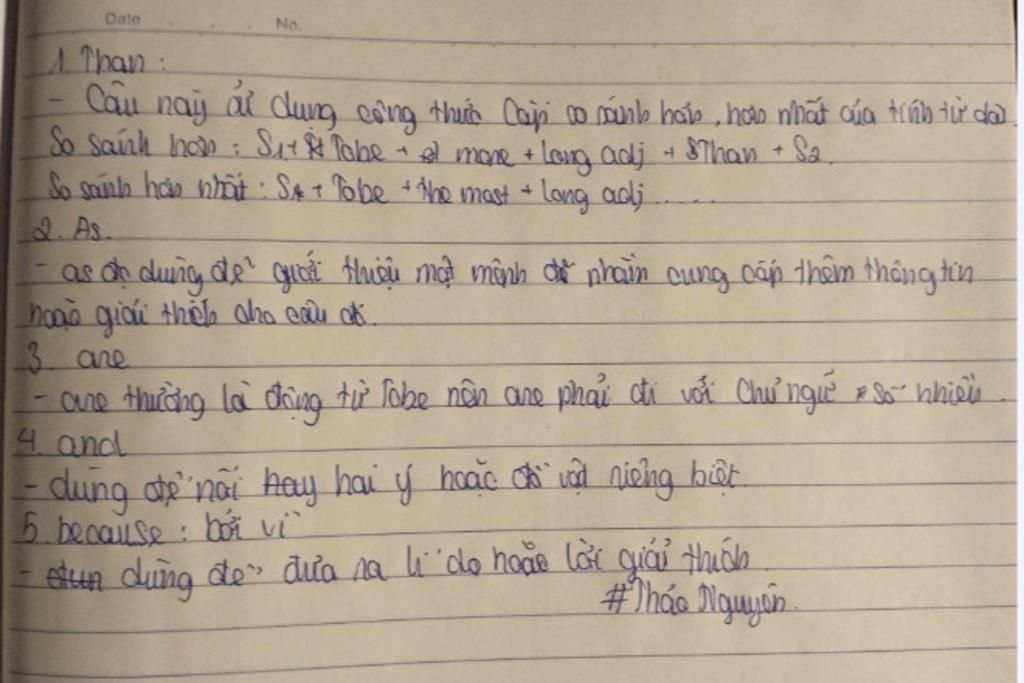 Date . . . No.
1. Than:
- Câu này sử dụng công thức so sánh hơn, hơn nhất của tính từ dài
So sánh hơn: S1 + Tobe + more + Long adj + Than + S2.
So sánh hơn nhất: S + Tobe + the most + Long adj.....
2. As.
- as dùng để giới thiệu một mệnh đề nhằm cung cấp thêm thông tin
hoặc giải thích cho câu đó.
3. are
- are thường là động từ Tobe nên are phải đi với Chủ ngữ số nhiều.
4. and
- dùng để nối hay hai ý hoặc đồ vật riêng biệt.
5. because: bởi vì
- dùng để đưa ra lí do hoặc lời giải thích.
#Thảo Nguyên.